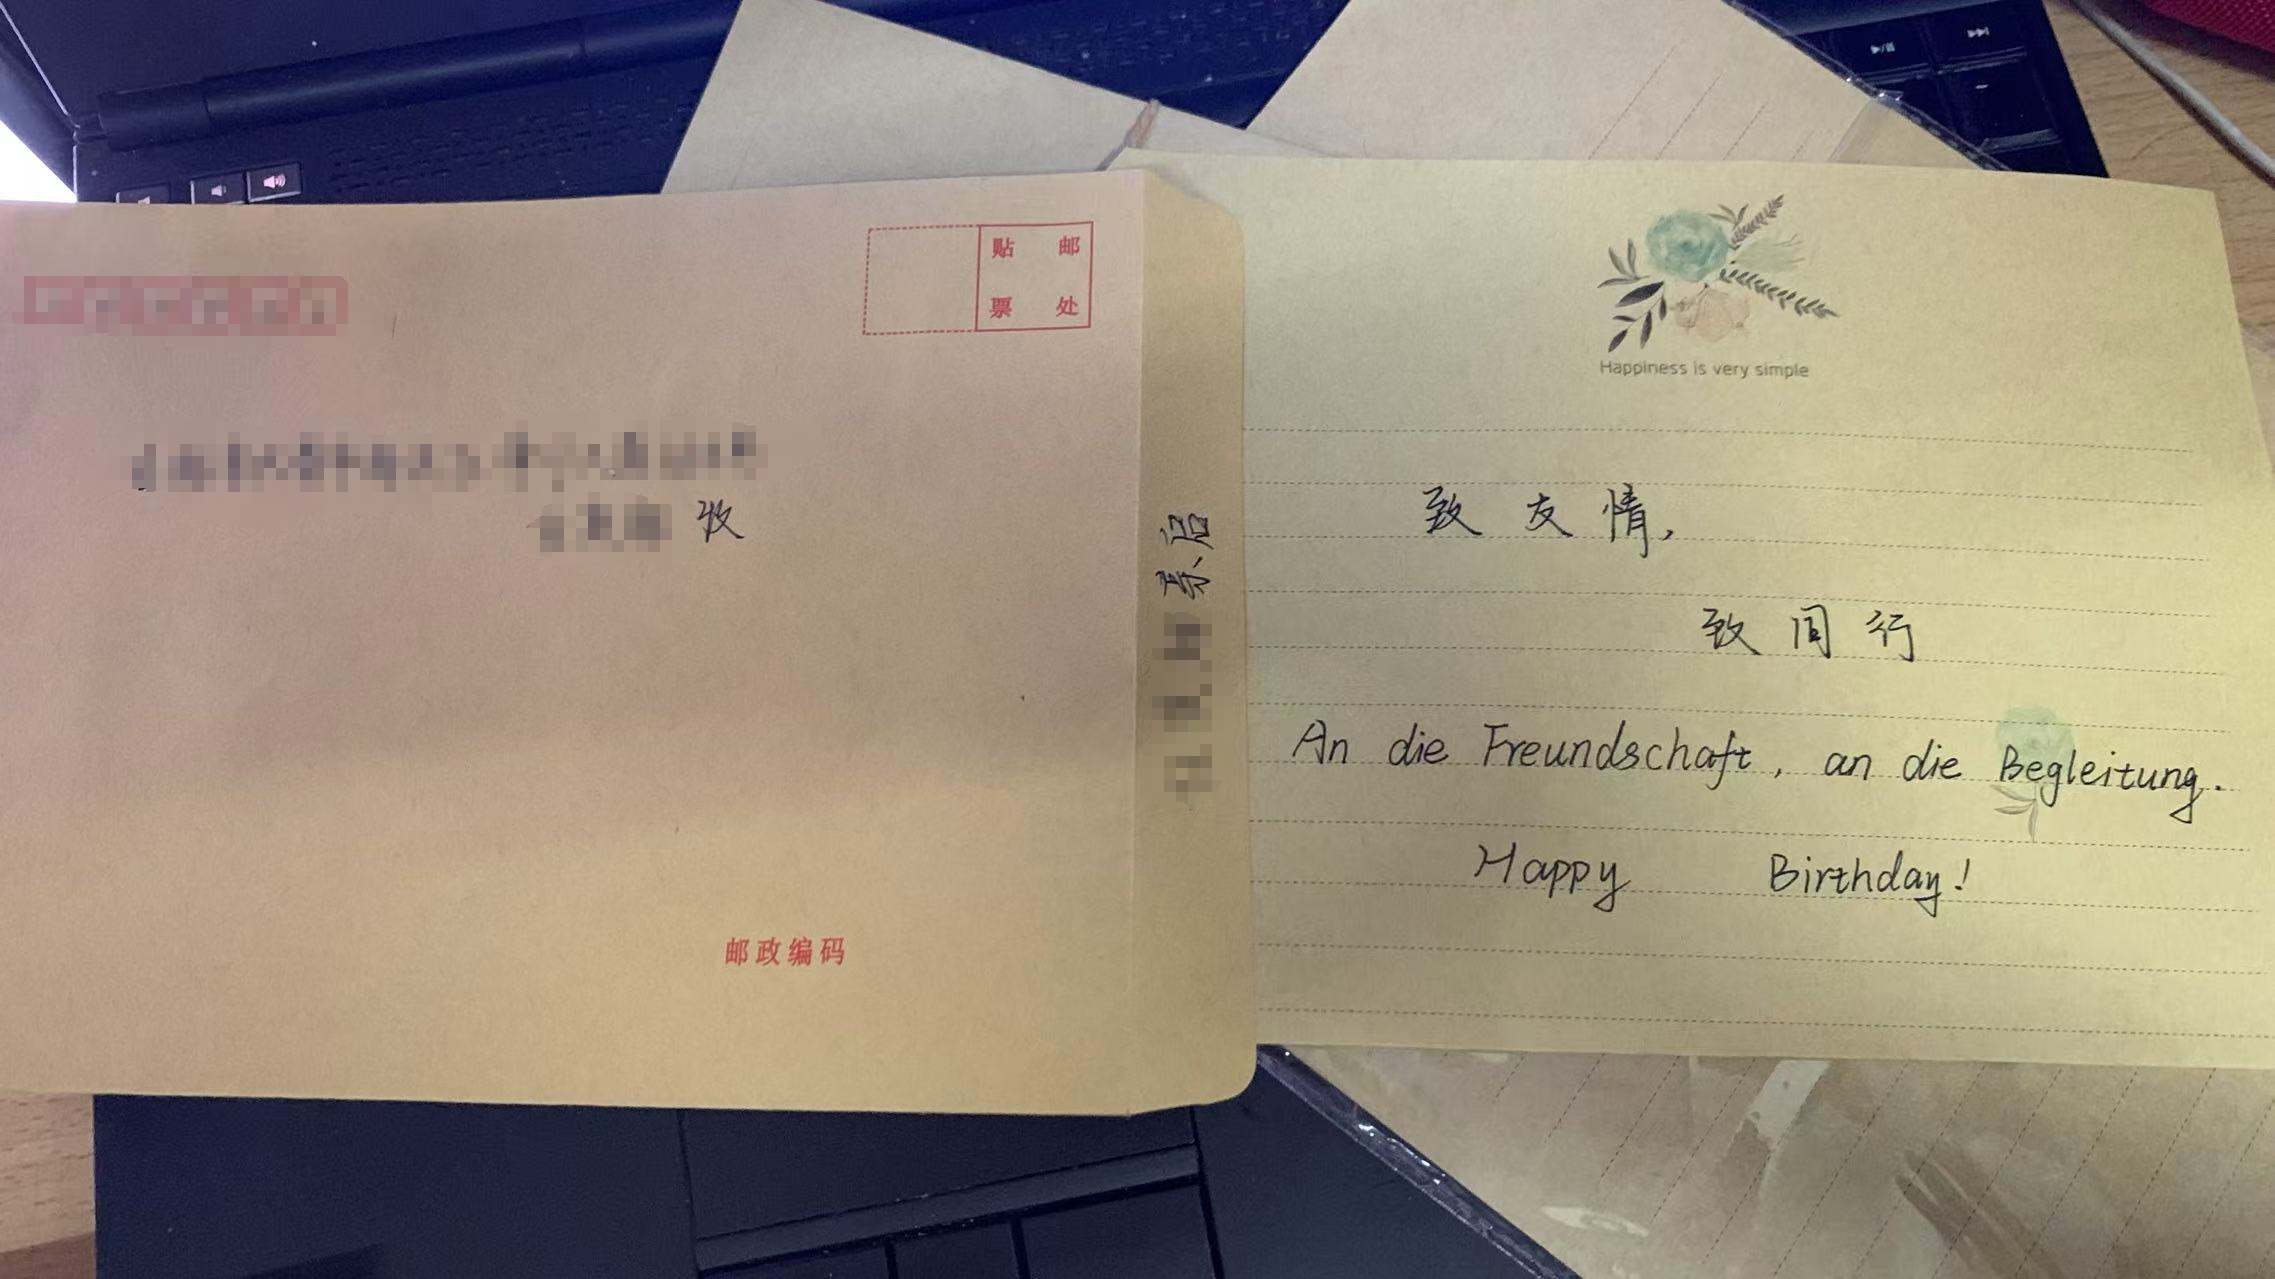 贴 邮
票 处
收
亲启
邮政编码
Happiness is very simple
致友情，
致同行
An die Freundschaft, an die Begleitung.
Happy Birthday!